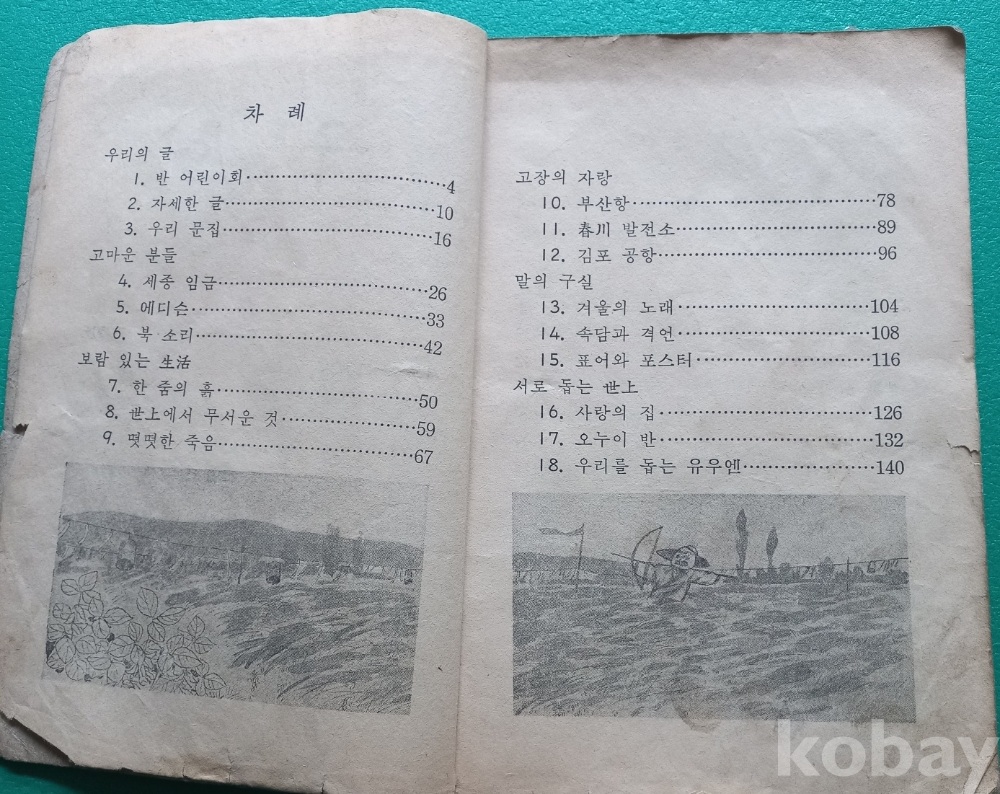 차 례
우리의 글
1. 반 어린이회 4
2. 자세한 글 10
3. 우리 문집 16
고마운 분들
4. 세종 임금 26
5. 에디슨 33
6. 북 소리 42
보람 있는 生活
7. 한 줌의 흙 50
8. 世上에서 무서운 것 59
9. 떳떳한 죽음 67
고장의 자랑
10. 부산항 78
11. 春川 발전소 89
12. 김포 공항 96
말의 구실
13. 겨울의 노래 104
14. 속담과 격언 108
15. 표어와 포스터 116
서로 돕는 世上
16. 사랑의 집 126
17. 오누이 반 132
18. 우리를 돕는 유우엔 140
kobay